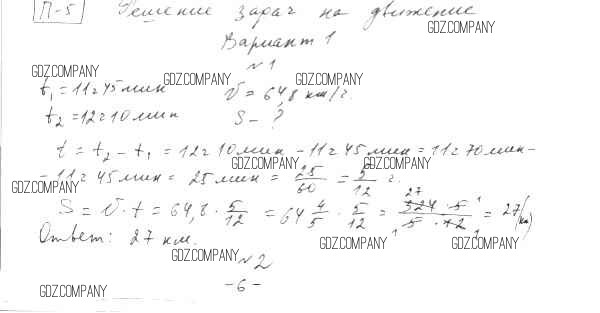 П-5 Решение задач на движение
GDZ.COMPANY
Вариант 1
№1
GDZ.COMPANY GDZ.COMPANY GDZ.COMPANY
t₁ = 11ч 45 мин V = 64,8 км/ч.
t₂ = 12ч 10 мин S - ?
t = t₂ - t₁ = 12ч 10 мин - 11ч 45 мин = 11ч 70 мин -
GDZ.COMPANY GDZ.COMPANY
- 11ч 45 мин = 25 мин = 25/60 = 5/12 ч.
GDZ.COMPANY
S = V · t = 64,8 · 5/12 = 64 4/5 · 5/12 = 324 · 5 / 5 · 12 = 27 (км)
27 1
1 1
Ответ: 27 км.
GDZ.COMPANY GDZ.COMPANY
GDZ.COMPANY
№2
-6-
GDZ.COMPANY